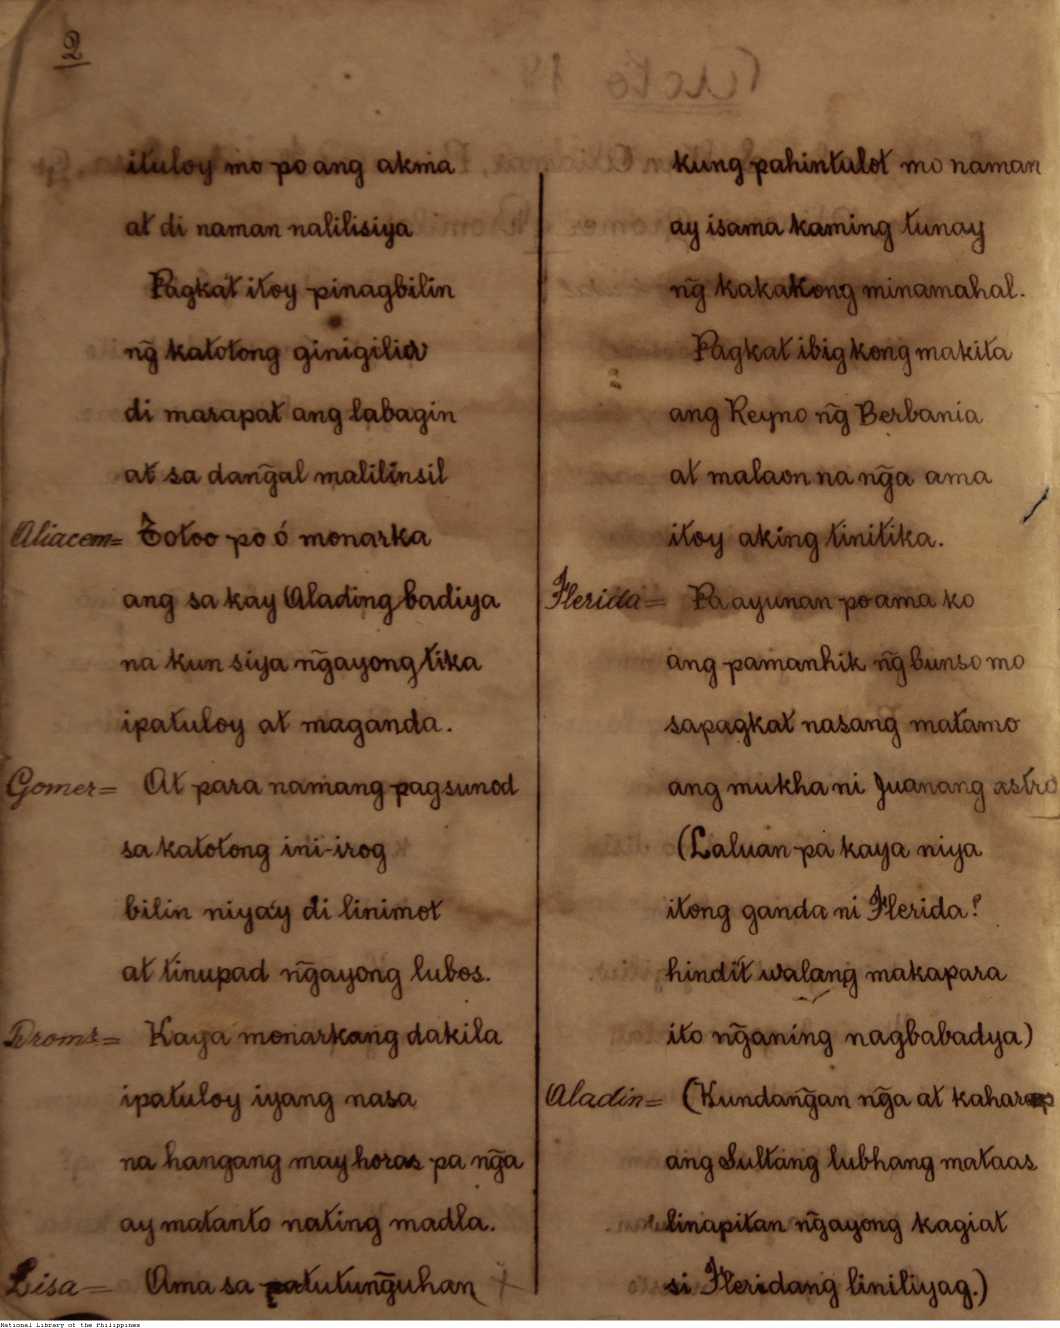 2
ituloy mo po ang akma
at di naman nalilisiya
Pagkat itoy pinagbilin
ng̃ katotong ginigiliw
di marapat ang labagin
at sa dang̃al malilinsil
Aliacem= Totoo po ó monarka
ang sa kay Alading badiya
na kun siya ng̃ayong tika
ipatuloy at maganda.
Gomer= At para namang pagsunod
sa katotong ini-irog
bilin niya'y di linimot
at tinupad ng̃ayong lubos.
Kaya monarkang dakila
ipatuloy iyang nasa
na hangang may horas pa ng̃a
ay matanto nating madla.
Lisa= Ama sa patutung̃uhan
kung pahintulot mo naman
ay isama kaming tunay
ng̃ kakakong minamahal.
Pagkat ibig kong makita
ang Reyno ng̃ Berbania
at malaon na ng̃a ama
itoy aking tinitika.
Flerida= Pa ayunan po ama ko
ang pamanhik ng̃ bunso mo
sapagkat nasang matamo
ang mukha ni Juanang astro
(Laluan pa kaya niya
itong ganda ni Flerida?
hindit walang makapara
ito ng̃aning nagbabadya)
Aladin= (Kundang̃an ng̃a at kaharap
ang Sultang lubhang mataas
linapitan ng̃ayong kagiat
si Fleridang liniliyag.)
National Library of the Philippines